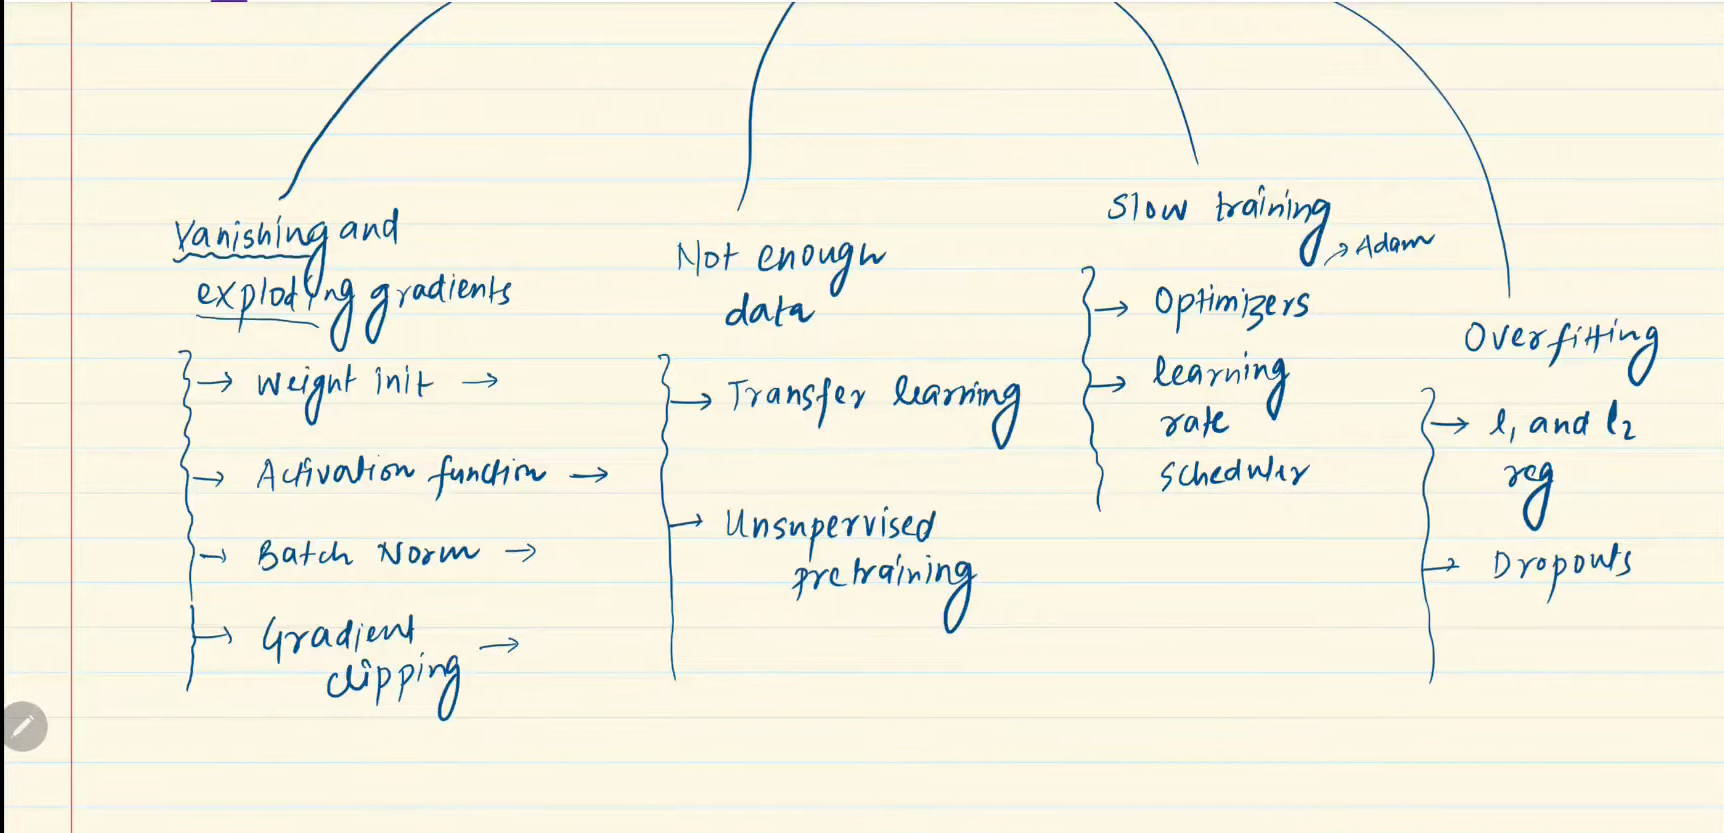 Vanishing and
exploding gradients
→ Weight init →
→ Activation function →
→ Batch Norm →
→ Gradient →
clipping
Not enough
data
→ Transfer learning
→ Unsupervised
pretraining
Slow training
→ Adam
→ Optimizers
→ learning
rate
scheduler
Overfitting
→ l₁ and l₂
reg
→ Dropouts